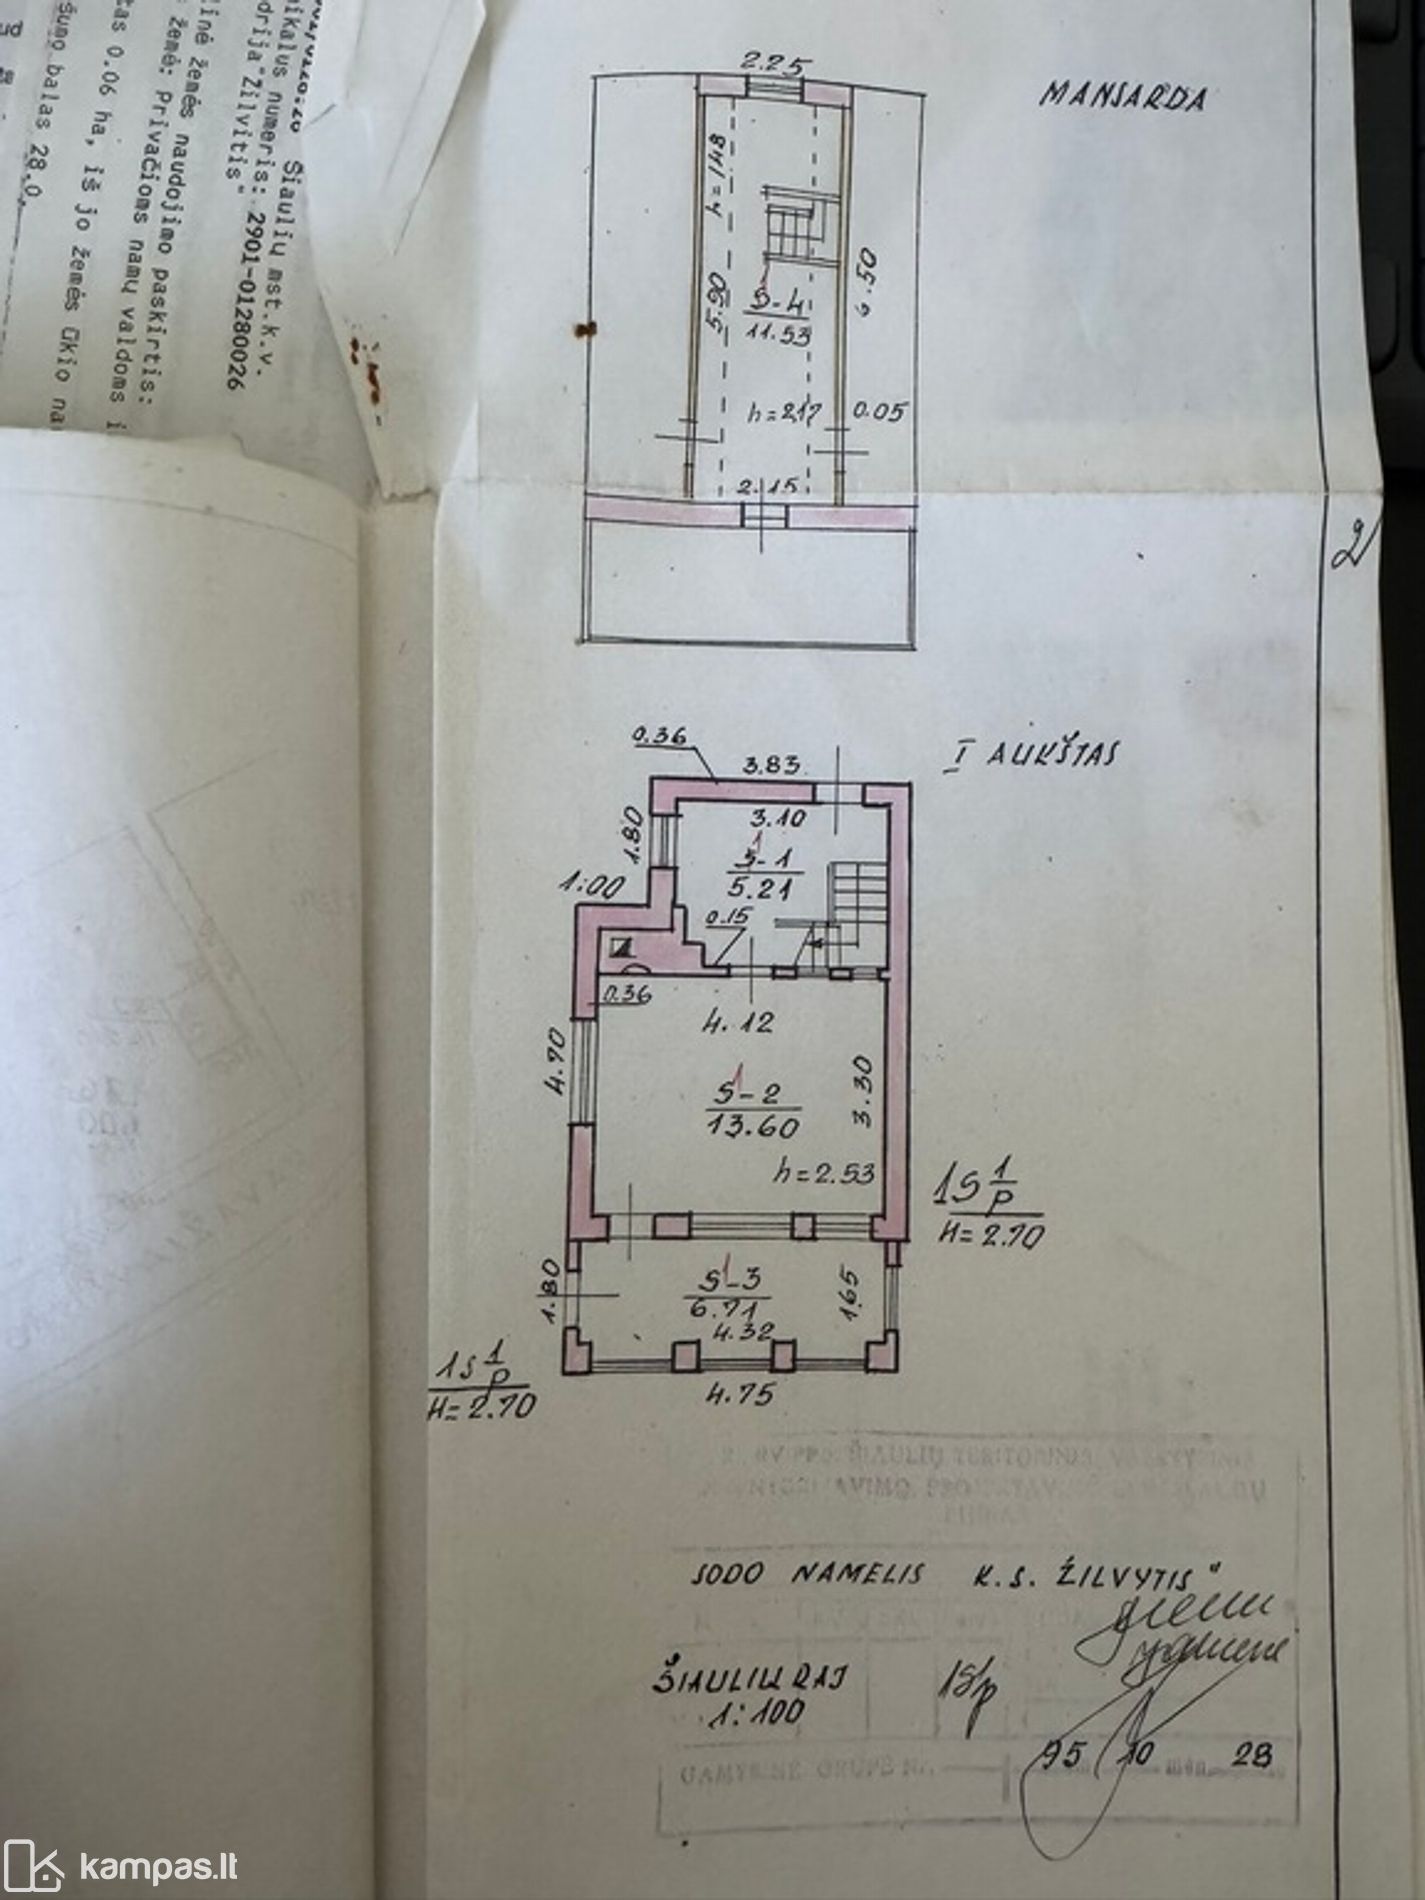 Šiaulių mst.k.v.
nikalus numeris: 2901-01280026
drija"Žilvitis"
inė žemės naudojimo paskirtis:
žemė; Privačioms namų valdoms i
tas 0.06 ha, iš jo žemės ūkio na
šumo balas 28.0.
MANSARDA
2.25
h=148
5.90
S-4
11.53
6.50
h=217
0.05
2.15
2
I AUKŠTAS
0.36
3.83
3.10
1.80
S-1
5.21
1:00
0.15
0.36
4.12
4.70
S-2
13.60
3.30
h=2.53
1S 1/p
H=2.70
S-3
6.71
1.80
1.65
4.32
4.75
1s 1/p
H=2.70
SODO NAMELIS K.S. ŽILVYTIS"
ŠIAULIŲ RAJ
1:100
1S/p
GAMYBINĖ GRUPĖ Nr.
95 10 mėn. 28
kampas.lt